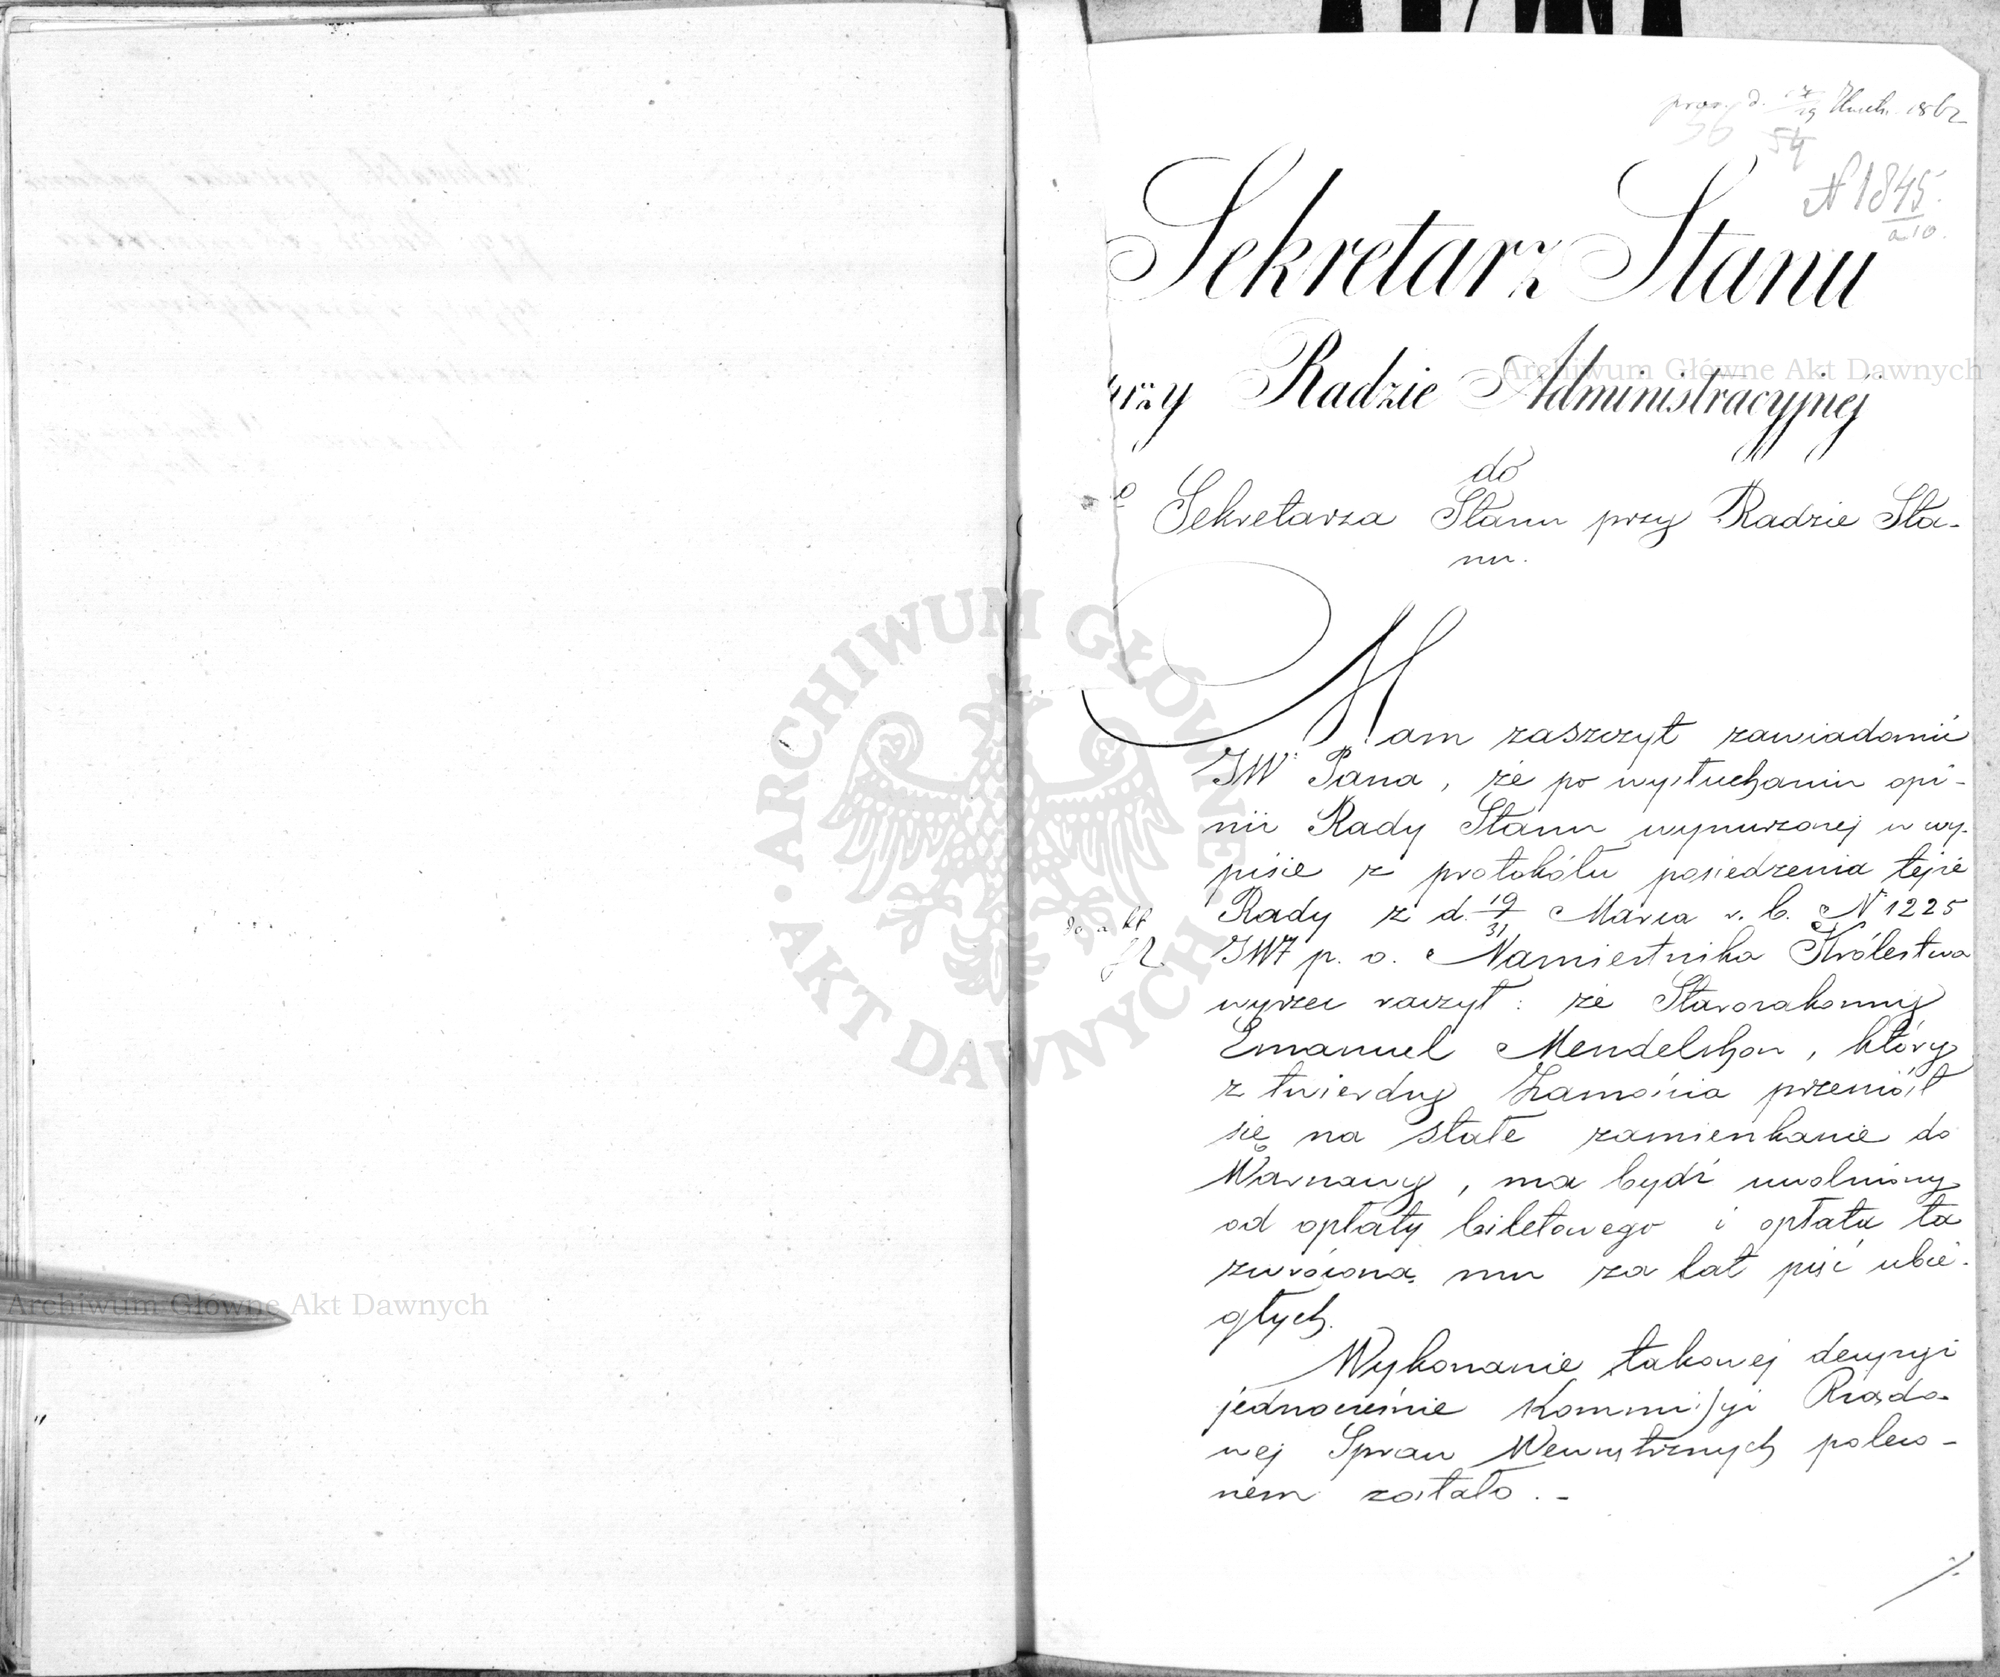 1862
54
N 1845.
a 10.
Sekretarz Stanu
przy Radzie Administracyjnej
do
Sekretarza Stanu przy Radzie Sta-
nu.
Mam zaszczyt zawiadomić
JW Pana, że po wysłuchaniu opi-
nii Rady Stanu wynurzonej w wy-
pisie z protokółu posiedzenia tejże
Rady z d. 19/31 Marca r. b. N 1225
do akt
JW p. o. Namiestnika Królestwa
wyrzec raczył: że Starozakonny
Emanuel Mendelshon, który
z twierdzy Zamościa przeniósł
się na stałe zamieszkanie do
Warszawy, ma bydź uwolniony
od opłaty biletowego i opłata ta
zwróconą mu za lat pięć ubie-
głych.
Wykonanie takowej decyzyi
jednocześnie Kommissyi Rządo-
wej Spraw Wewnętrznych poleco-
nem zostało. -
Archiwum Główne Akt Dawnych
Archiwum Główne Akt Dawnych
ARCHIWUM GŁÓWNE AKT DAWNYCH